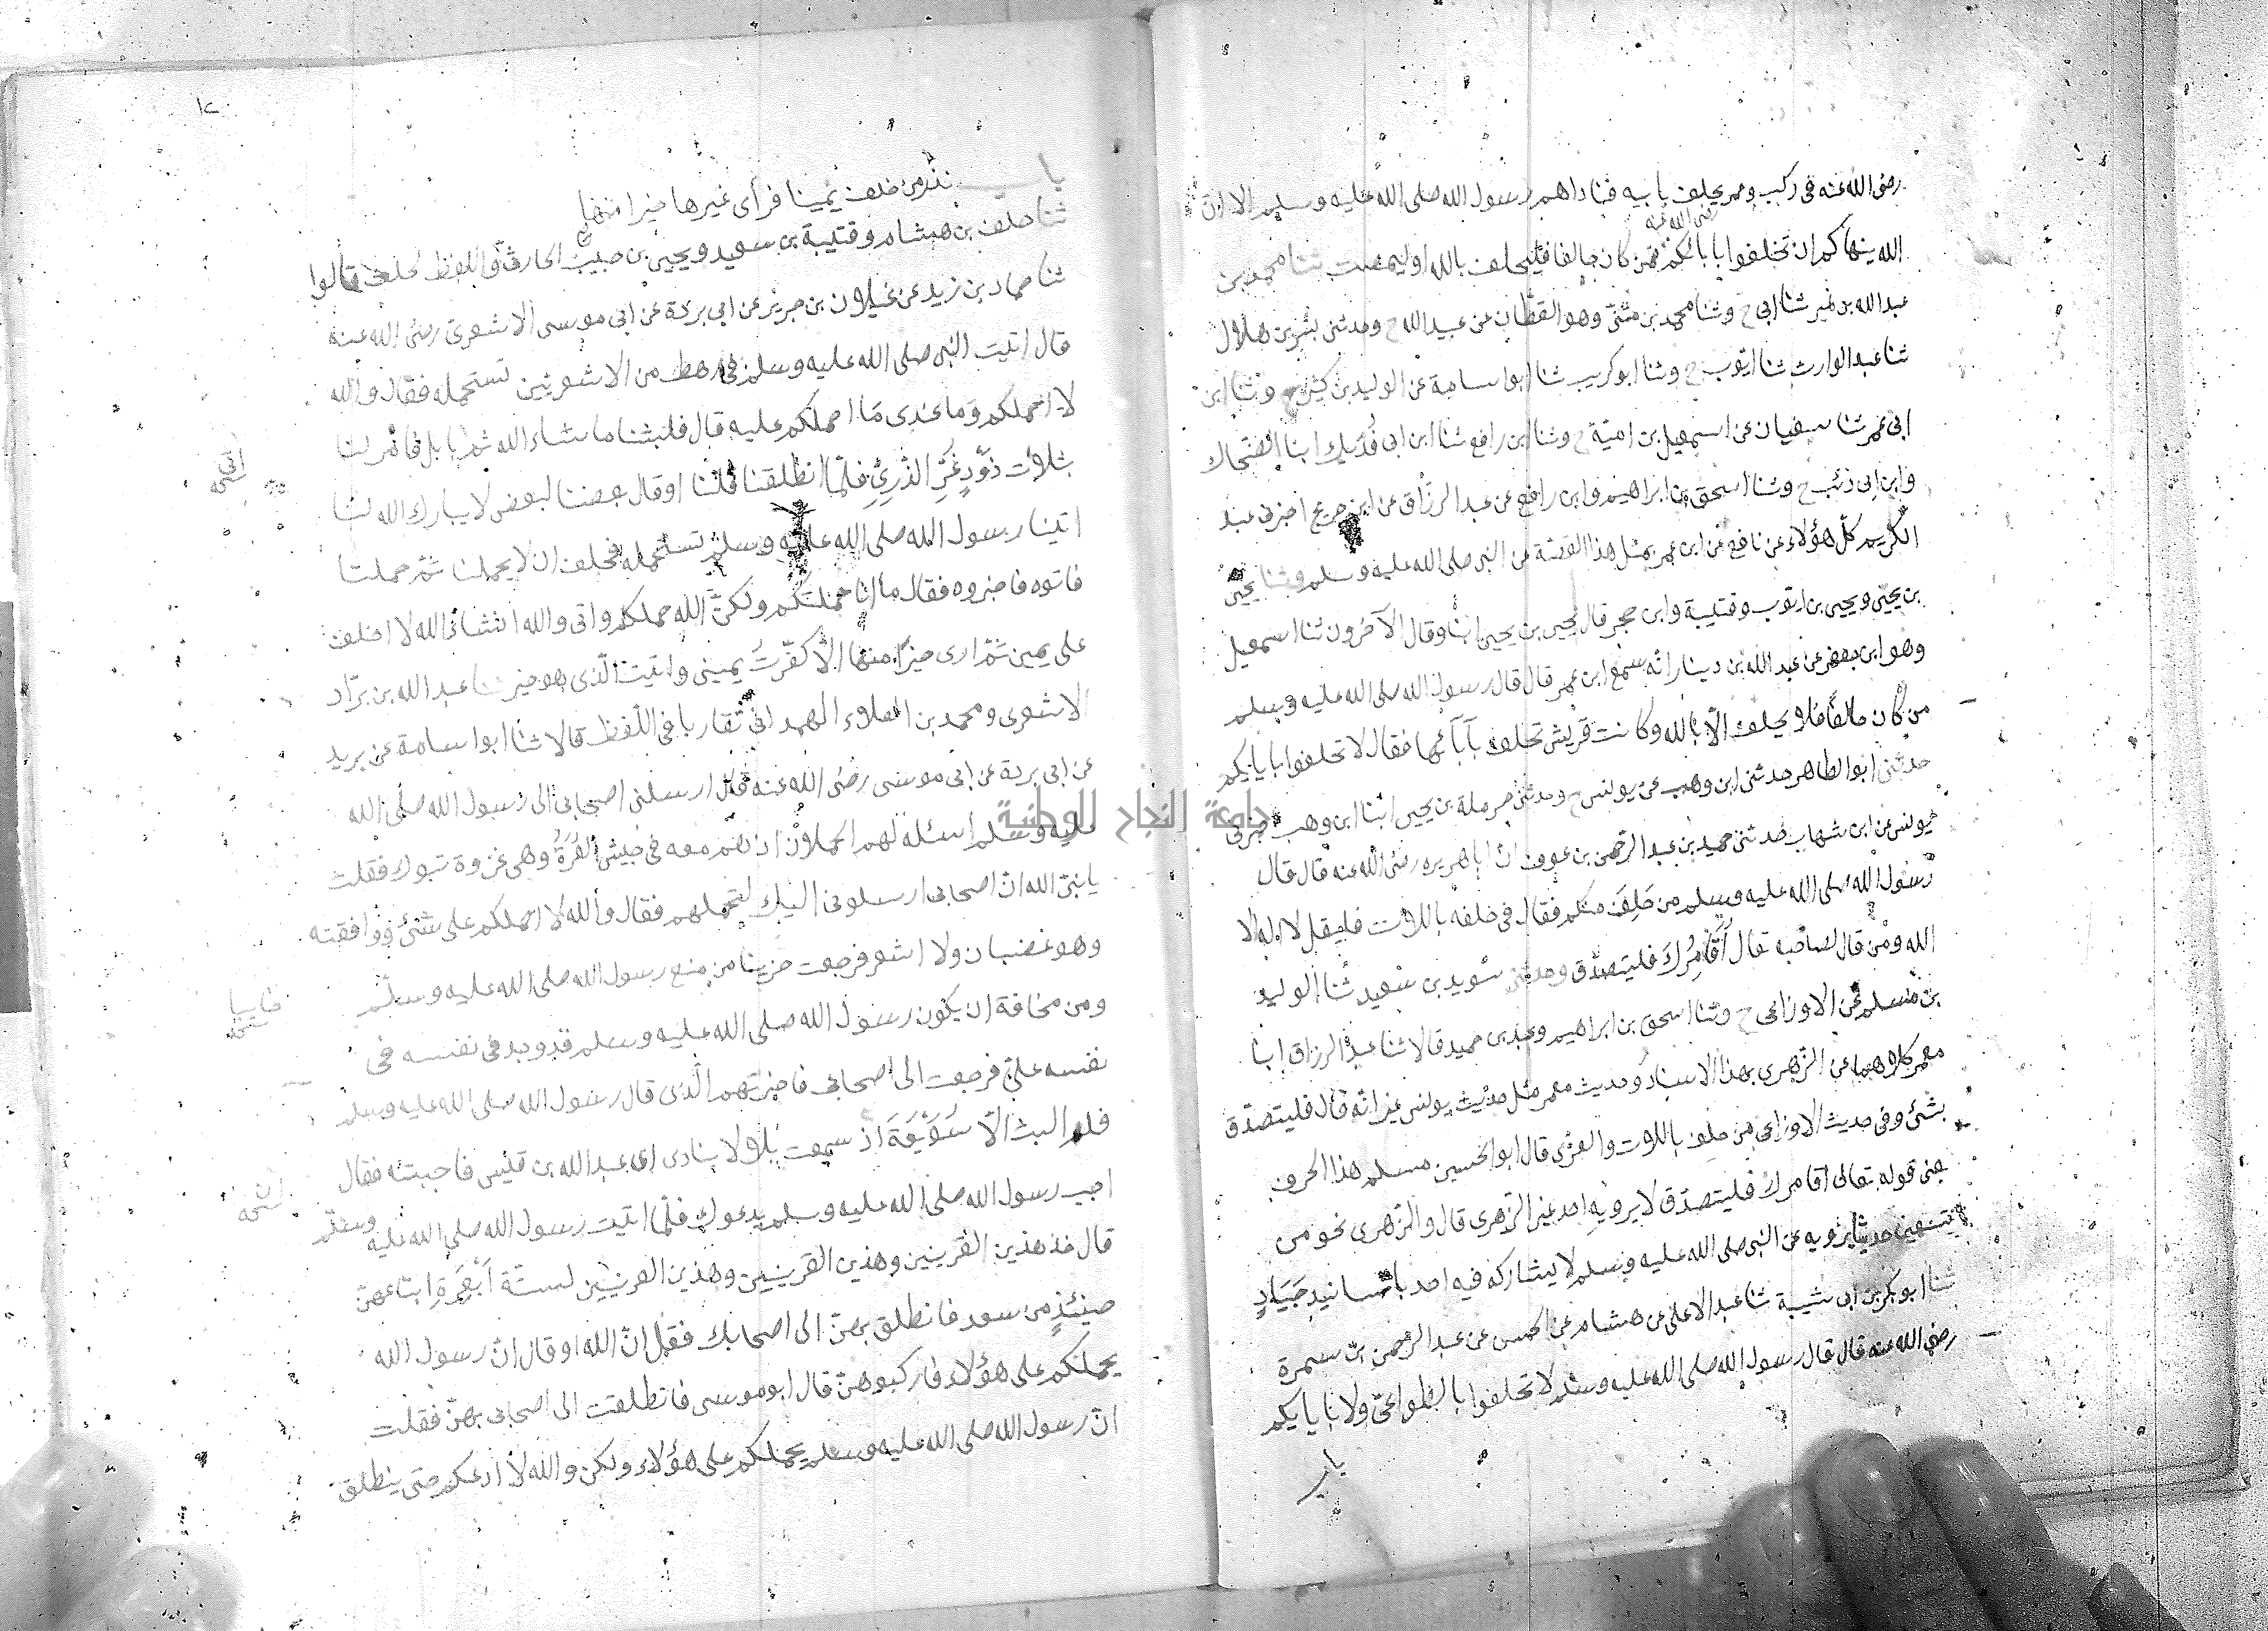 رضى الله عنه فى ركب وعمر يحلف بابيه فناداهم رسول الله صلى الله عليه وسلم الا ان
رضى الله عنه
الله ينهاكم ان تحلفوا بابائكم فمن كان حالفا فليحلف بالله او ليصمت ثنا محمد بن
عبد الله بن نمير ثنا ابى ح وثنا محمد بن مثنى وهو القطان عن عبيد الله ح وحدثنى بشر بن هلال
ثنا عبد الوارث ثنا ايوب ح وثنا ابو كريب ثنا ابو اسامة عن الوليد بن كثير ح وثنا ابن
ابى عمر ثنا سفيان عن اسمعيل بن امية ح وثنا ابن رافع ثنا ابن ابى فديك ابنا الضحاك
وابن ابى ذئب ح وثنا اسحق بن ابراهيم وابن رافع عن عبد الرزاق عن ابن جريج اخبرنى عبد
الكريم كل هؤلاء عن نافع عن ابن عمر بمثل هذا القصة عن النبى صلى الله عليه وسلم وثنا يحيى
بن يحيى ويحيى بن ايوب وقتيبة وابن حجر قال يحيى بن يحيى ابنا وقال الآخرون ثنا اسمعيل
وهو ابن جعفر عن عبد الله بن دينار انه سمع ابن عمر قال قال رسول الله صلى الله عليه وسلم
من كان حالفا فلا يحلف الا بالله وكانت قريش تحلف بآبائها فقال لا تحلفوا بابايكم
حدثنى ابو الطاهر حدثنى ابن وهب عن يونس ح وحدثنى حرملة بن يحيى ابنا ابن وهب اخبرنى
يونس عن ابن شهاب حدثنى حميد بن عبد الرحمن بن عوف ان ابا هريره رضى الله عنه قال قال
رسول الله صلى الله عليه وسلم من حلف منكم فقال فى حلفه باللات فليقل لا اله الا
الله ومن قال لصاحبه تعال اقامرك فليتصدق وحدثنى سويد بن سعيد ثنا الوليد
بن مسلم عن الاوزاعى ح وثنا اسحق بن ابراهيم وعبد بن حميد قالا ثنا عبد الرزاق ابنا
معمر كلاهما عن الزهرى بهذا الاسناد وحديث معمر مثل حديث يونس غير انه قال فليتصدق
بشئ وفى حديث الاوزاعى من حلف باللات والعزى قال ابو الحسين مسلم هذا الحرف
يعنى قوله تعالى اقامرك فليتصدق لا يرويه احد غير الزهرى قال والزهرى نحو من
تسعين حديثا يرويه عن النبى صلى الله عليه وسلم لا يشاركه فيه احد باسانيد جياد
ثنا ابو بكر بن ابى شيبة ثنا عبد الاعلى عن هشام عن الحسن عن عبد الرحمن بن سمرة
رضى الله عنه قال قال رسول الله صلى الله عليه وسلم لا تحلفوا بالطواغى ولا بابايكم
باب
١٢
باب من حلف يمينا فرأى غيرها خيرا منها
ثنا خلف بن هشام وقتيبة بن سعيد ويحيى بن حبيب الحارثى واللفظ لخلف قالوا
ثنا حماد بن زيد عن غيلان بن جرير عن ابى بردة عن ابى موسى الاشعرى رضى الله عنه
قال اتيت النبى صلى الله عليه وسلم فى رهط من الاشعريين نستحمله فقال والله
لا احملكم وما عندى ما احملكم عليه قال فلبثنا ما شاء الله ثم بابل فامر لنا
اتى نسخه
بثلاث ذود غر الذرى فلما انطلقنا قلنا او قال بعضنا لبعض لا يبارك الله لنا
اتينا رسول الله صلى الله عليه وسلم نستحمله فحلف ان لا يحملنا ثم حملنا
فاتوه فاخبروه فقال ما انا حملتكم ولكن الله حملكم وانى والله انشاء الله لا احلف
على يمين ثم ارى خيرا منها الا كفرت يمينى واتيت الذى هو خير ثنا عبد الله بن براد
الاشعرى ومحمد بن العلاء الهمدانى تقاربا فى اللفظ قالا ثنا ابو اسامة عن بريد
عن ابى بردة عن ابى موسى رضى الله عنه قال ارسلنى اصحابى الى رسول الله صلى الله
عليه وسلم اسئله لهم الحملان اذ هم معه فى جيش العسرة وهى غزوة تبوك فقلت
يا نبى الله ان اصحابى ارسلونى اليك لتحملهم فقال والله لا احملكم على شئ ووافقته
وهو غضبان ولا اشعر فرجعت حزينا من منع رسول الله صلى الله عليه وسلم
ومن مخافة ان يكون رسول الله صلى الله عليه وسلم قد وجد فى نفسه فى
نفسه على فرجعت الى اصحابى فاخبرتهم الذى قال رسول الله صلى الله عليه وسلم
فلم البث الا سويعة اذ سمعت بلالا ينادى اى عبد الله بن قيس فاجبته فقال
اجب رسول الله صلى الله عليه وسلم يدعوك فلما اتيت رسول الله صلى الله عليه وسلم
قال خذ هذين القرينين وهذين القرينين وهذين القرينين لستة ابعرة ابتاعهن
حينئذ من سعد فانطلق بهن الى اصحابك فقل ان الله او قال ان رسول الله
يحملكم على هؤلاء فاركبوهن قال ابو موسى فانطلقت الى اصحابى بهن فقلت
ان رسول الله صلى الله عليه وسلم يحملكم على هؤلاء ولكن والله لا ادعكم حتى ينطلق
جامعة النجاح الوطنية